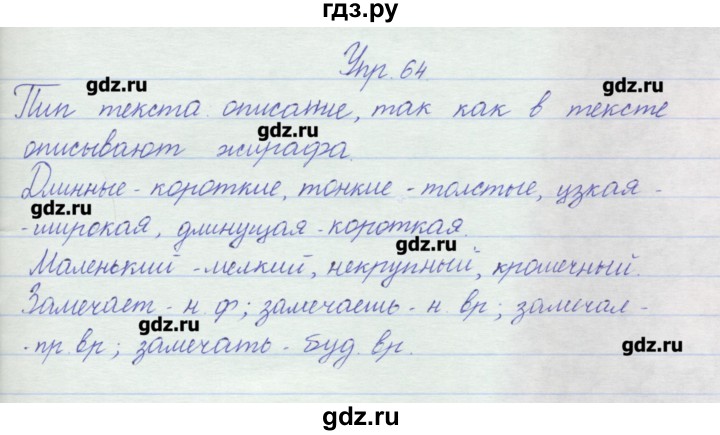 гдз.ру
Упр. 64
gdz.ru gdz.ru
Тип текста описание, так как в тексте
gdz.ru
описывают жирафа.
Длинные - короткие, тонкие - толстые, узкая -
gdz.ru
- широкая, длинущая - короткая.
gdz.ru
Маленький - мелкий, некрупный, крошечный.
Замечает - н. ф; замечаешь - н. вр; замечал -
gdz.ru
- пр. вр; замечать - буд. вр.
gdz.ru
gdz.ru